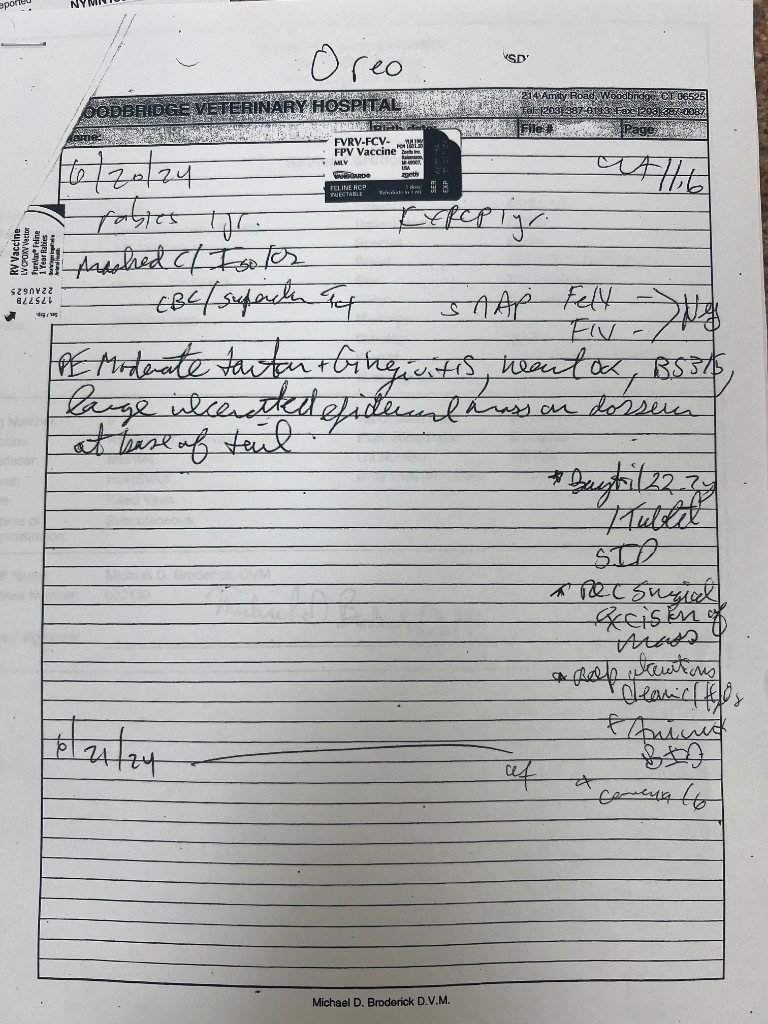 eported
NYMN
Oreo
OODBRIDGE VETERINARY HOSPITAL
214 Amity Road, Woodbridge, CT 06525
Tel: (203) 387-0113 Fax (203) 387-0087
ame:
File #
Page
FVRV-FCV-
FPV Vaccine
MLV
VANGUARD®
zoetis
FELINE RCP
INJECTABLE
1 dose
Rehydrate to 1 mL
SER
EXP
6/20/24
11.6
rabies 1yr.
FVRCP 1yr.
RV Vaccine
LV CPOXV Vector
PureVax® Feline
1 Year Rabies
17577B
22AUG25
Ser./Exp.
Masked c/ Iso/O2
CBC/superchem T4
SNAP FeLV -
FIV - > Neg
PE Moderate tartar + Gingivitis, heart ok, BS 3/5,
large ulcerated epidermal mass on dorsum
at base of tail.
* Baytril 22.7
1 Tablet
SID
* Rec Surgical
Excision of
mass
BID
6/21/24
*
Michael D. Broderick D.V.M.